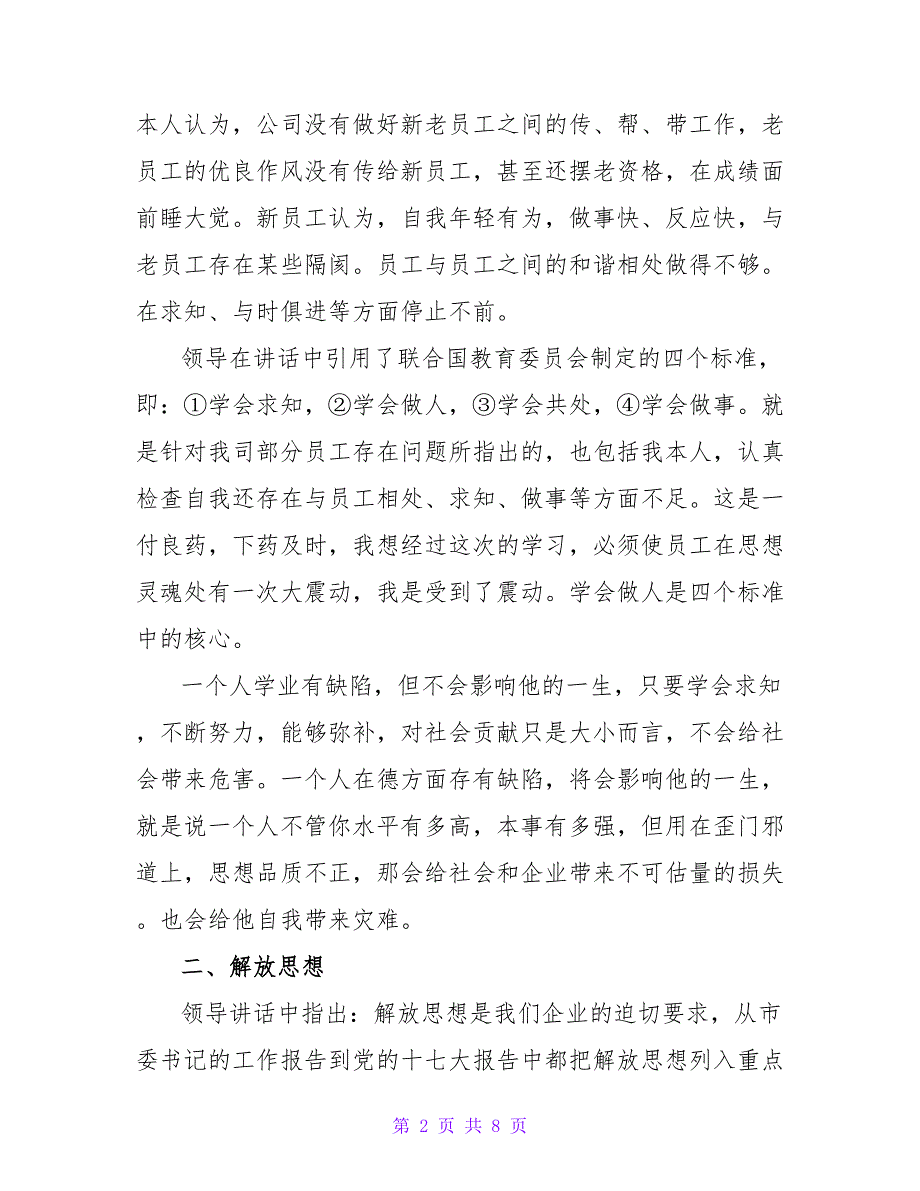 本人认为，公司没有做好新老员工之间的传、帮、带工作，老
员工的优良作风没有传给新员工，甚至还摆老资格，在成绩面
前睡大觉。新员工认为，自我年轻有为，做事快、反应快，与
老员工存在某些隔阂。员工与员工之间的和谐相处做得不够。
在求知、与时俱进等方面停止不前。
领导在讲话中引用了联合国教育委员会制定的四个标准，
即：①学会求知，②学会做人，③学会共处，④学会做事。就
是针对我司部分员工存在问题所指出的，也包括我本人，认真
检查自我还存在与员工相处、求知、做事等方面不足。这是一
付良药，下药及时，我想经过这次的学习，必须使员工在思想
灵魂处有一次大震动，我是受到了震动。学会做人是四个标准
中的核心。
一个人学业有缺陷，但不会影响他的一生，只要学会求知
，不断努力，能够弥补，对社会贡献只是大小而言，不会给社
会带来危害。一个人在德方面存有缺陷，将会影响他的一生，
就是说一个人不管你水平有多高，本事有多强，但用在歪门邪
道上，思想品质不正，那会给社会和企业带来不可估量的损失
。也会给他自我带来灾难。
二、解放思想
领导讲话中指出：解放思想是我们企业的迫切要求，从市
委书记的工作报告到党的十七大报告中都把解放思想列入重点
第 2 页 共 8 页